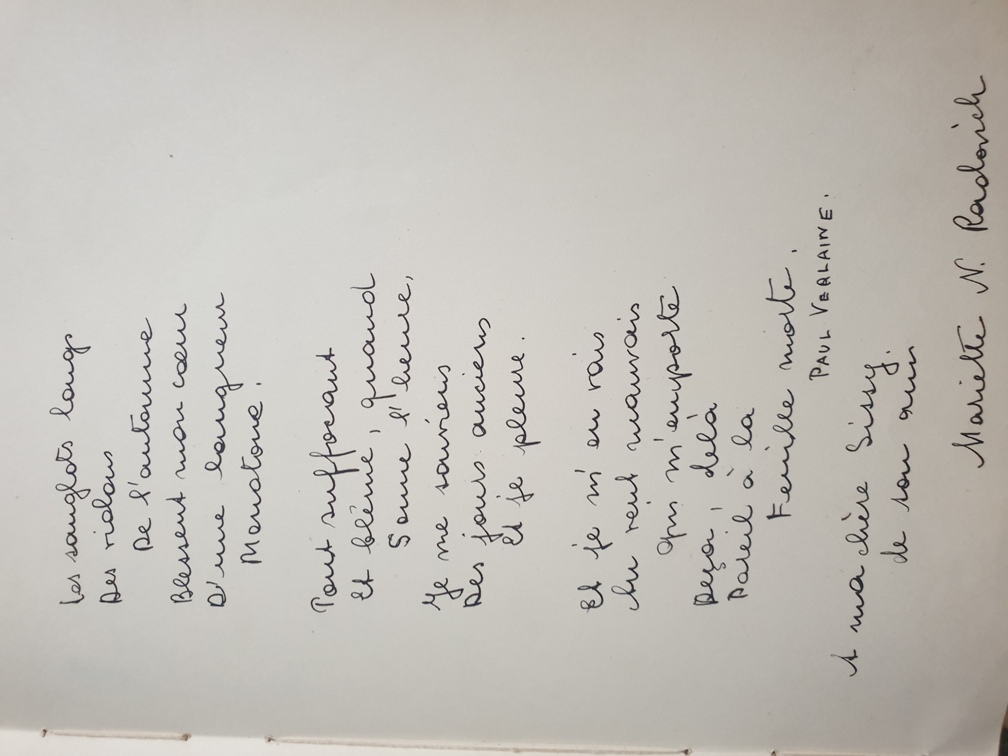 Les sanglots longs
Des violons
De l'automne
Blessent mon coeur
D'une langueur
Monotone.
Tout suffocant
Et blême, quand
Sonne l'heure,
Je me souviens
Des jours anciens
Et je pleure.
Et je m'en vais
Au vent mauvais
Qui m'emporte
Deçà, delà
Pareil à la
Feuille morte.
PAUL VERLAINE.
A ma chère Sissy.
de son amie
Mariette N. Radovich